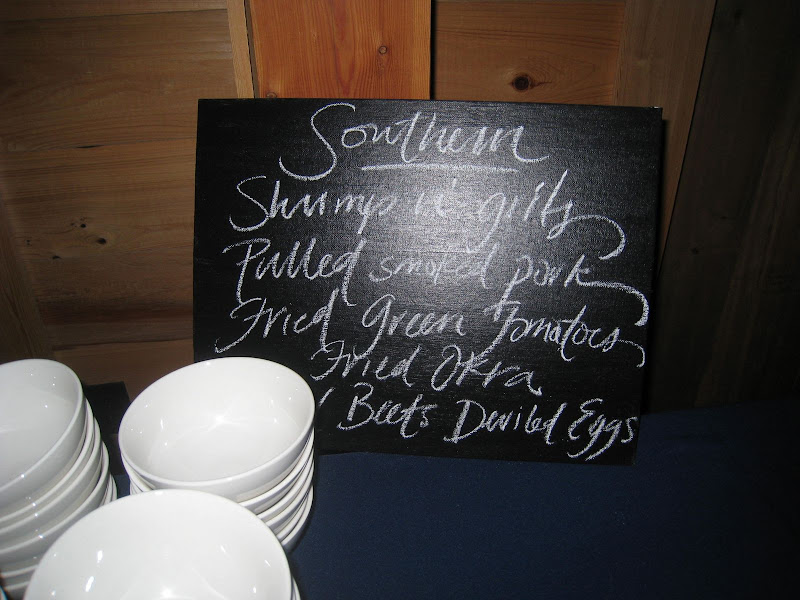 Southern
Shrimp n' grits
Pulled smoked pork
Fried Green Tomatoes
Fried Okra
Beets Deviled Eggs